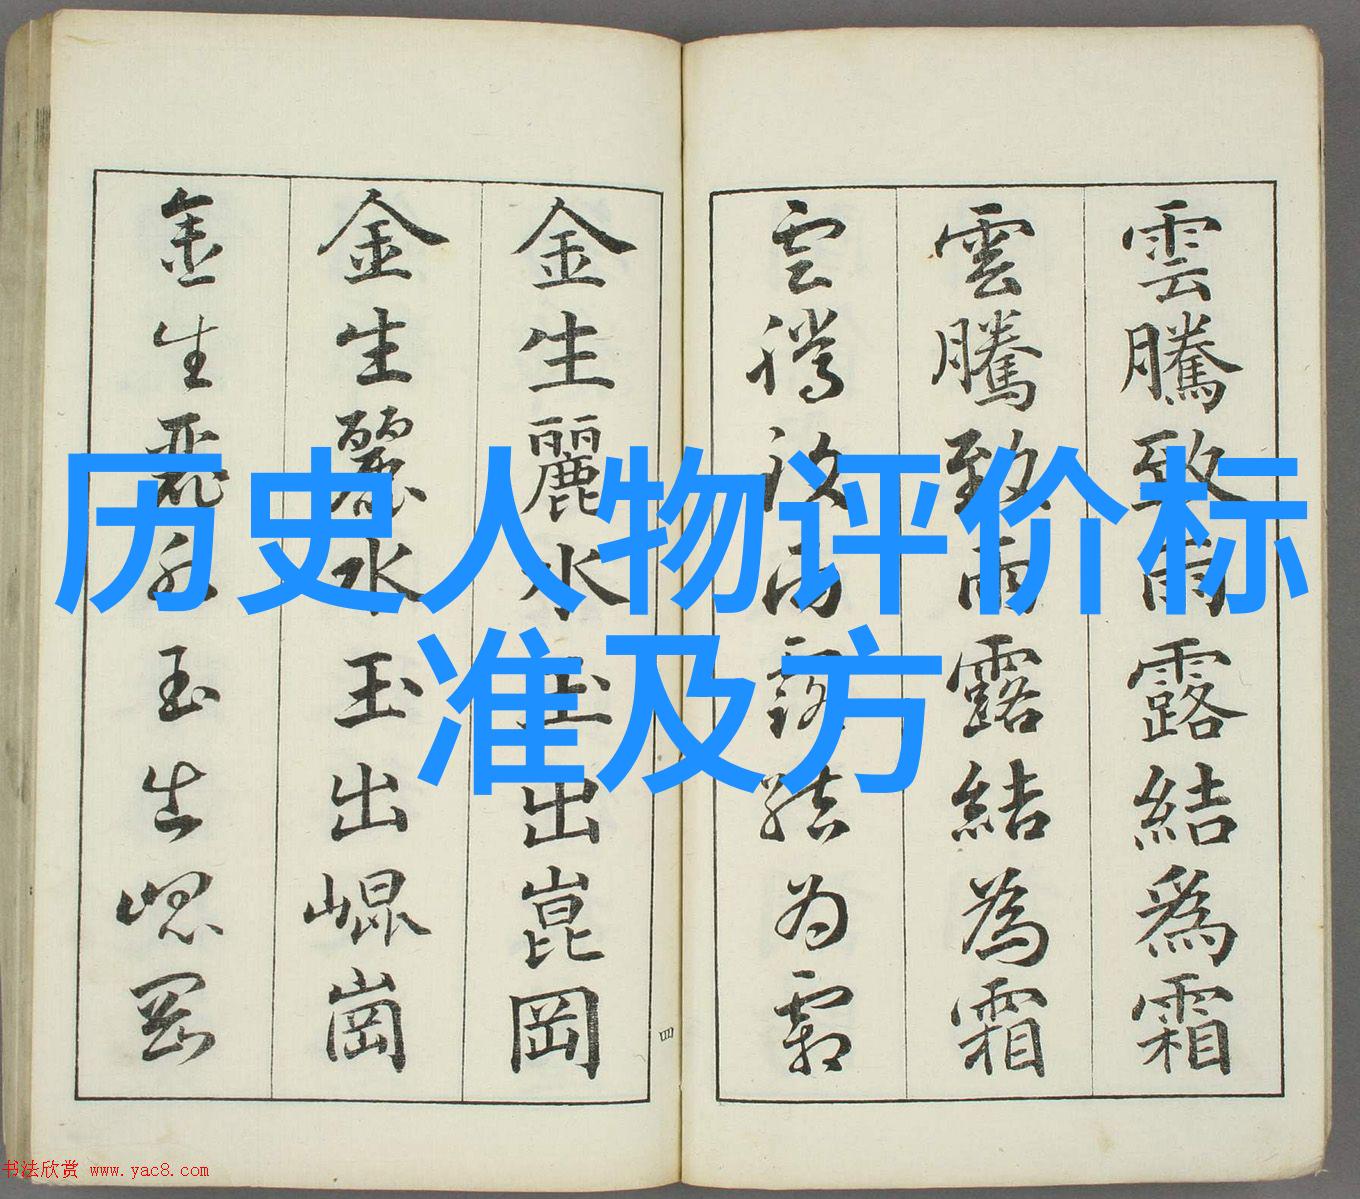 历史人物评价标
准及方
雲騰致雨露結爲霜
雲騰致雨露結為霜
雲騰致雨露結为霜
金生麗水玉出崑岡
金生麗水玉出崐崗
金生麗水玉出崐岡
四
书法欣赏 www.yac8.com